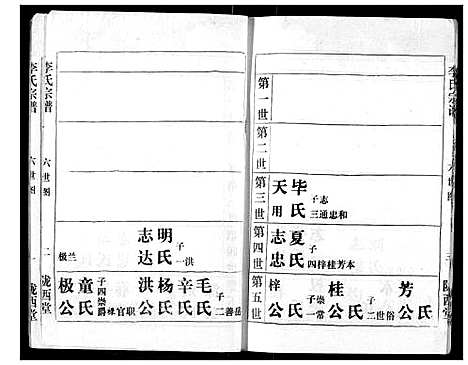 李氏宗谱
第一世
第二世
第三世
天用
毕氏
子志
三通忠和
第四世
志忠
夏氏
子
四梓桂芳本
第五世
梓公
氏
子崇
一常
桂公
氏
子世
二俗
芳公
氏
李氏宗谱
六世图
二
陇西堂
李氏宗谱
六世图
一
陇西堂
志达
明氏
子
一洪
极兰
极公
童氏
子四崇
爵禄官职
洪公
杨氏
辛氏
毛氏
子
二善岳